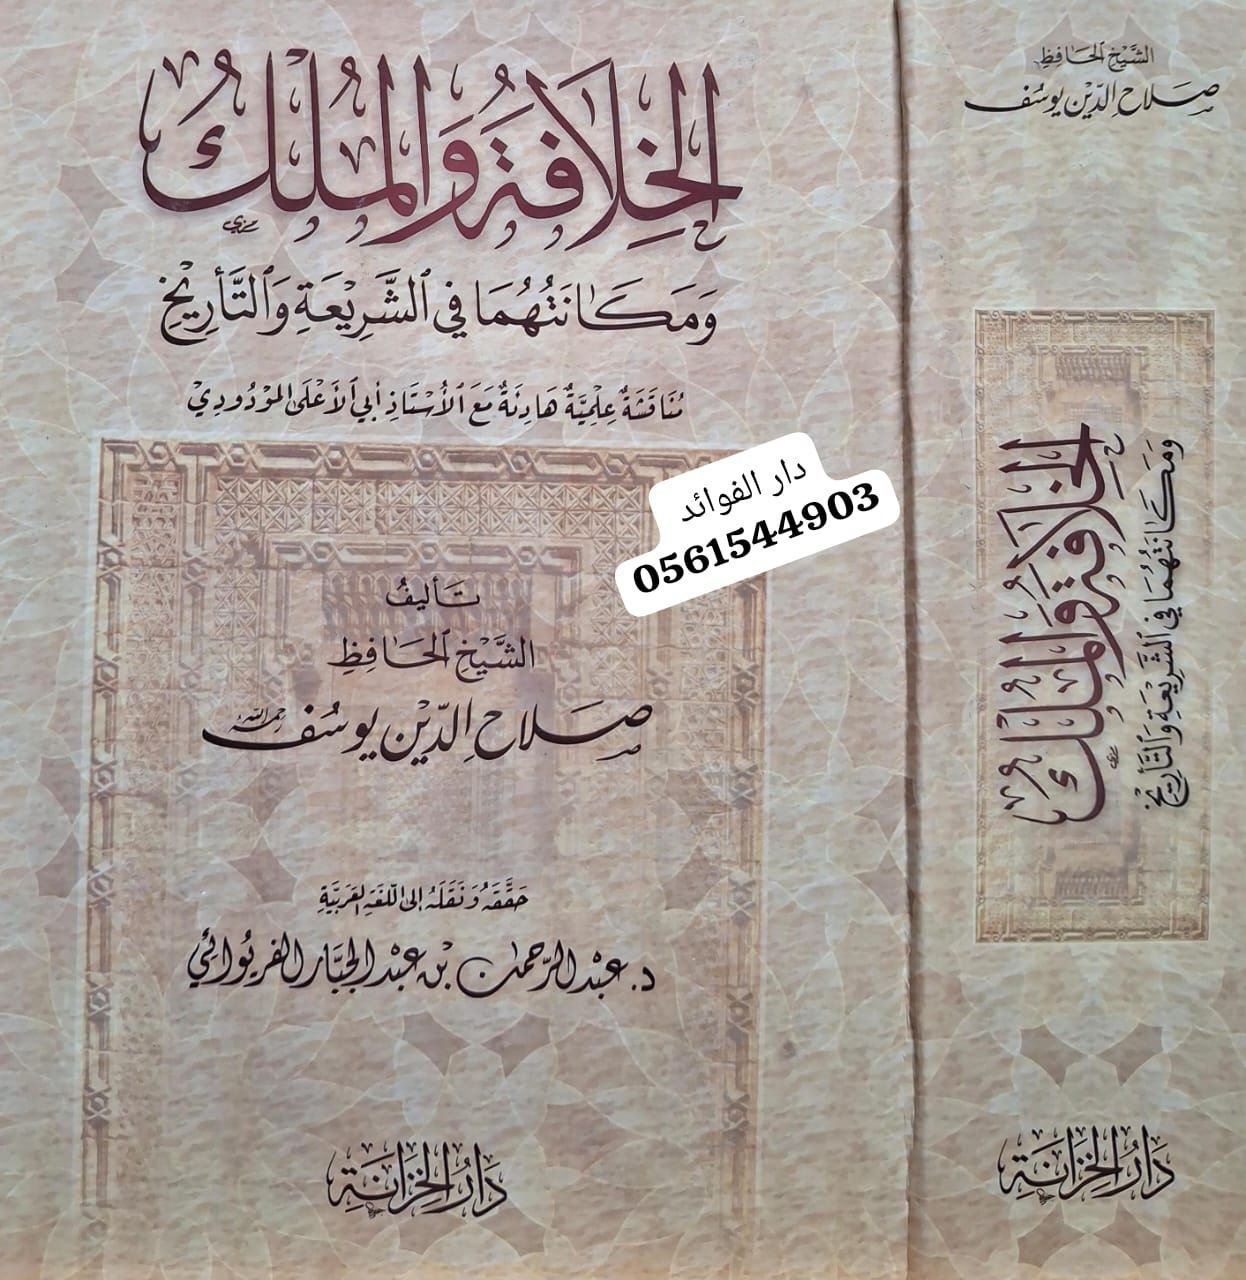 الخِلَافَةُ وَالمُلْكُ
وَمَكَانَتُهُمَا فِي الشَّرِيْعَةِ وَالتَّأرِيْخِ
مُنَاقَشَةٌ عِلْمِيَّةٌ هَادِئَةٌ مَعَ الأُسْتَاذِ أبي الأَعْلَى المَوْدُودِيْ
دار الفوائد
0561544903
تَأليفُ
الشَّيْخِ الحَافِظِ
صَلَاح الدِّيْن يوسُف رحمه الله
حَقَّقَهُ وَنَقَلَهُ إلى اللّغَةِ العَرَبيَّةِ
د. عَبْد الرَّحمٰن بْن عَبْد الجَبَّار الفريْوَائي
دَارُ الخِزَانَةِ
الشَّيْخ الحَافِظِ
صَلَاح الدِّيْن يوسُف
الخِلَافَةُ وَالمُلْكُ
وَمَكَانَتُهُمَا فِي الشَّرِيْعَةِ وَالتَّأرِيْخِ
دَارُ الخِزَانَةِ